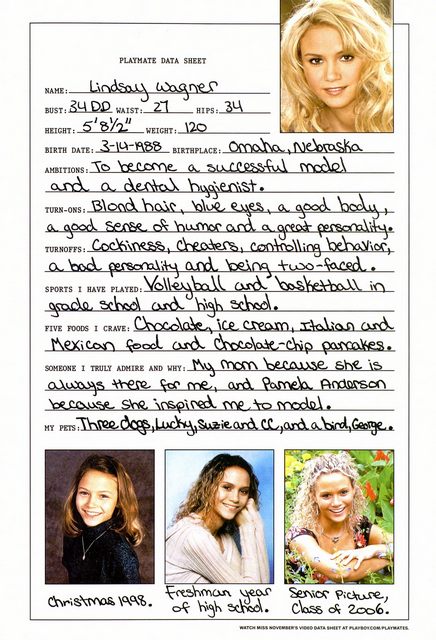 PLAYMATE DATA SHEET
NAME: Lindsay Wagner
BUST: 34DD WAIST: 27 HIPS: 34
HEIGHT: 5'8½" WEIGHT: 120
BIRTH DATE: 3-14-1988 BIRTHPLACE: Omaha, Nebraska
AMBITIONS: To become a successful model
and a dental hygienist.
TURN-ONS: Blond hair, blue eyes, a good body,
a good sense of humor and a great personality.
TURNOFFS: Cockiness, cheaters, controlling behavior,
a bad personality and being two-faced.
SPORTS I HAVE PLAYED: Volleyball and basketball in
grade school and high school.
FIVE FOODS I CRAVE: Chocolate, ice cream, Italian and
Mexican food and Chocolate-chip pancakes.
SOMEONE I TRULY ADMIRE AND WHY: My mom because she is
always there for me, and Pamela Anderson
because she inspired me to model.
MY PETS: Three dogs, Lucky, Suzie and CC, and a bird, George.
Christmas 1998.
Freshman year
of high school.
Senior Picture,
Class of 2006.
WATCH MISS NOVEMBER'S VIDEO DATA SHEET AT PLAYBOY.COM/PLAYMATES.